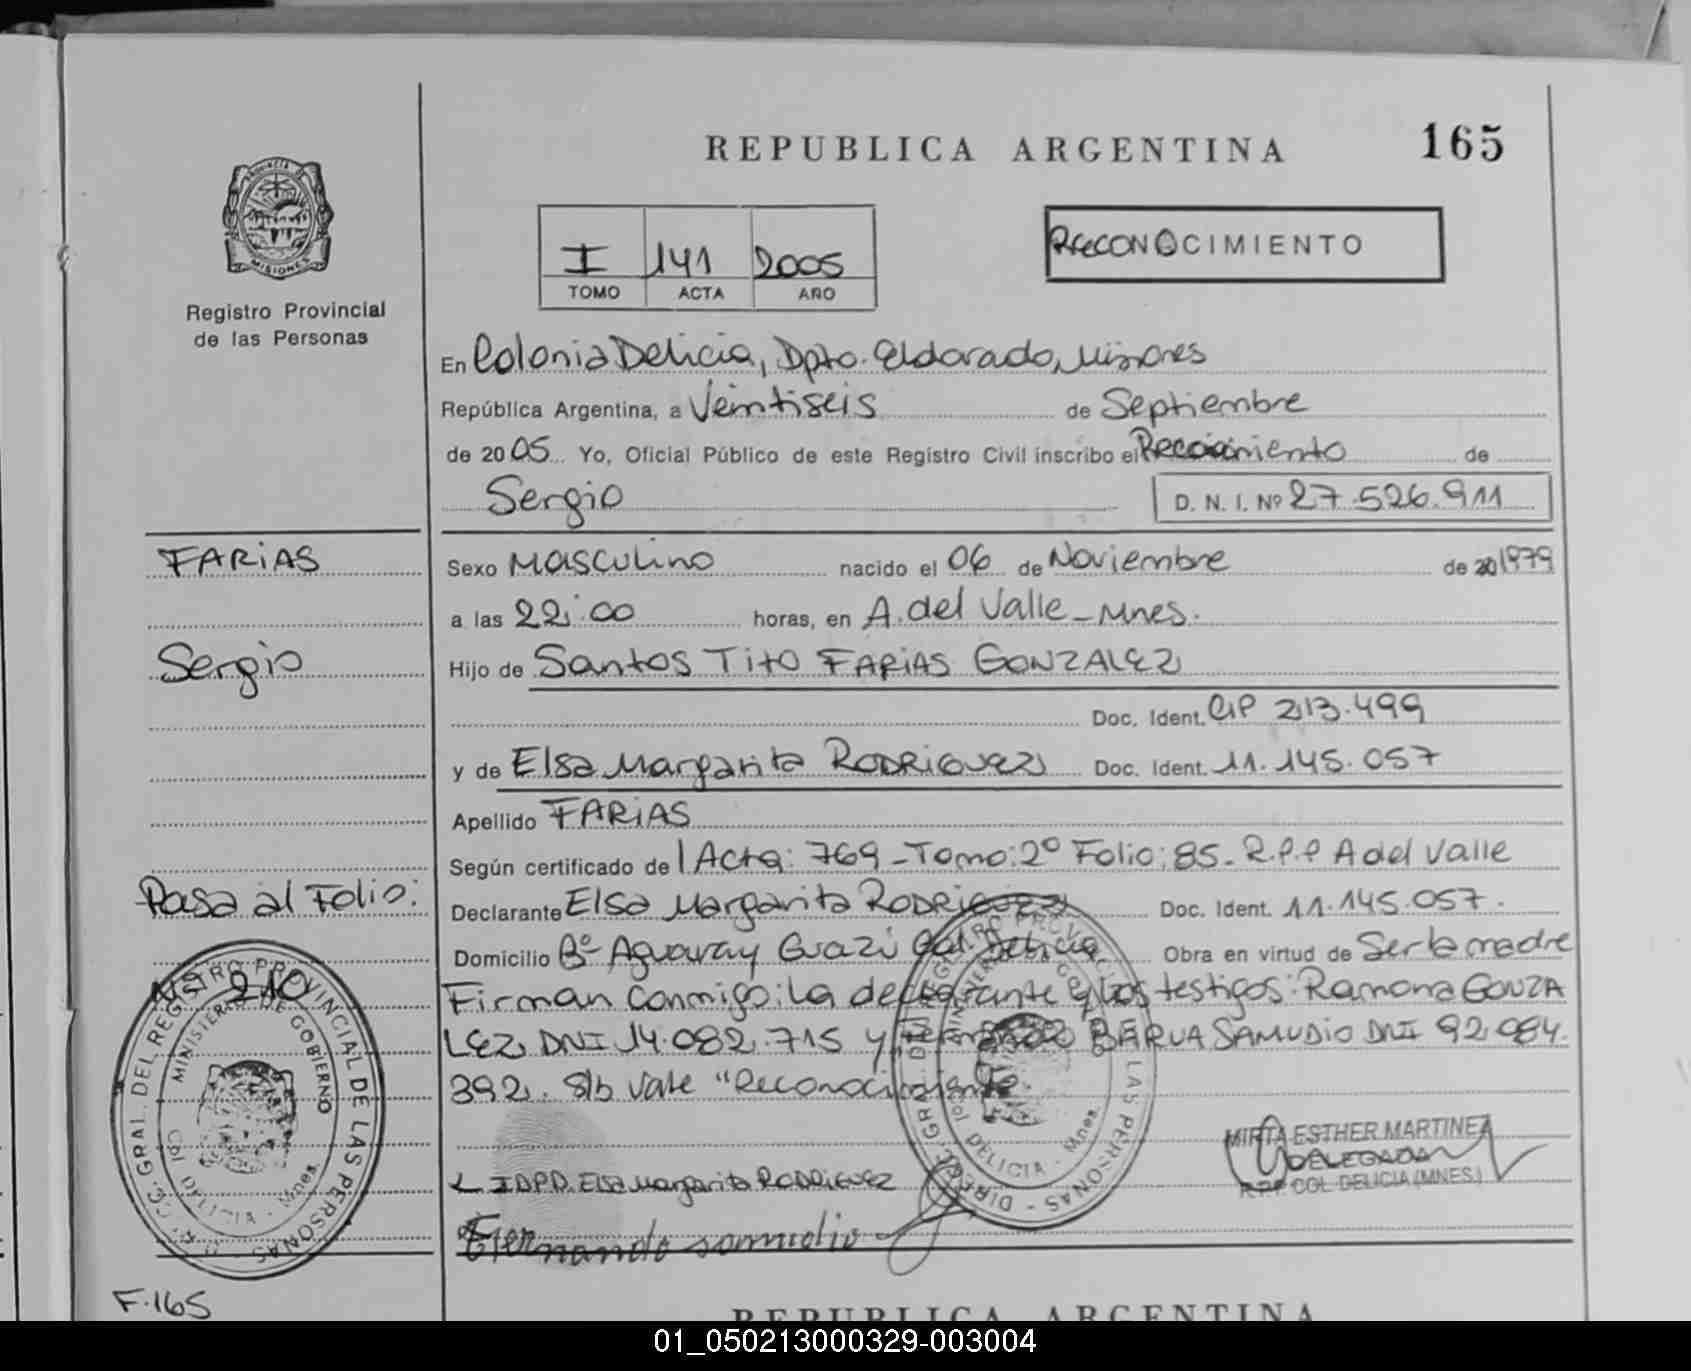 REPUBLICA ARGENTINA
165
PROVINCIA DE
MISIONES
Registro Provincial
de las Personas
I 141 2005
TOMO ACTA AÑO
RECONOCIMIENTO
En Colonia Delicia, Dpto. Eldorado, Misiones
República Argentina, a Veintiseis de Septiembre
de 2005 Yo, Oficial Público de este Registro Civil inscribo el Reconocimiento de
Sergio D. N. I. Nº 27.526.911
FARIAS
Sexo Masculino nacido el 06 de Noviembre de 1979
a las 22:00 horas, en A. del Valle - Mnes.
Sergio
Hijo de Santos Tito FARIAS GONZALEZ
Doc. Ident. CIP 213.499
y de Elsa Margarita RODRIGUEZ Doc. Ident. 11.145.057
Apellido FARIAS
Según certificado de Acta: 769 - Tomo: 2º Folio: 85. R.P.P A del Valle
Pasa al Folio:
Nº 210
Declarante Elsa Margarita RODRIGUEZ Doc. Ident. 11.145.057.
Domicilio Bº Aguaray Guazú Col. Delicia Obra en virtud de Ser la madre
Firman conmigo: la declarante y los testigos: Ramona GONZA
LEZ DNI 14.082.715 y Fernando BARUA SAMUDIO DNI 92.084.
392. S/b Vale "Reconocimiento
L IDPD. Elsa Margarita RODRIGUEZ
Fernando samudio
MIRTA ESTHER MARTINEZ
DELEGADA
R.P.P. COL. DELICIA (MNES)
DIREC. GRAL. DEL REGISTRO PROVINCIAL DE LAS PERSONAS
MINISTERIO DE GOBIERNO
Col DELICIA - Mnes.
DIREC. GRAL. DEL REGISTRO PROVINCIAL DE LAS PERSONAS
MINISTERIO DE GOBIERNO
Col DELICIA - Mnes.
F.165
REPUBLICA ARGENTINA
01_050213000329-003004